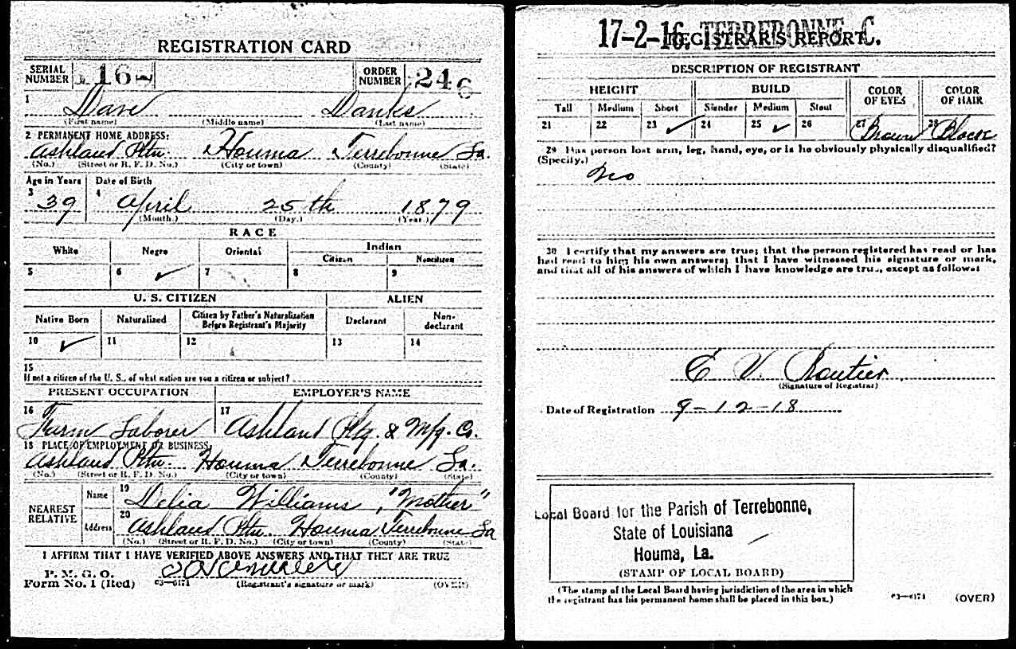 REGISTRATION CARD
SERIAL NUMBER 16 ORDER NUMBER 246
1 Dave Danks
(First name) (Middle name) (Last name)
2 PERMANENT HOME ADDRESS:
Ashland Ptn. Houma Terrebonne La.
(No.) (Street or R. F. D. No.) (City or town) (County) (State)
Age in Years Date of Birth
3 39 4 April 25th 1879
(Month.) (Day.) (Year.)
RACE
White Negro Oriental Indian
Citizen Noncitizen
5 6 ✓ 7 8 9
U. S. CITIZEN ALIEN
Native Born Naturalized Citizen by Father's Naturalization Before Registrant's Majority Declarant Non-declarant
10 ✓ 11 12 13 14
15
If not a citizen of the U. S., of what nation are you a citizen or subject?
PRESENT OCCUPATION EMPLOYER'S NAME
16 Farm Laborer 17 Ashland Plg. & Mfg. Co.
18 PLACE OF EMPLOYMENT OR BUSINESS:
Ashland Ptn. Houma Terrebonne La.
(No.) (Street or R. F. D. No.) (City or town) (County) (State)
NEAREST RELATIVE Name 19 Delia Williams, "Mother"
Address 20 Ashland Ptn. Houma Terrebonne La
(No.) (Street or R. F. D. No.) (City or town) (County) (State)
I AFFIRM THAT I HAVE VERIFIED ABOVE ANSWERS AND THAT THEY ARE TRUE
P. M. G. O.
Form No. 1 (Red) 03-6171 (Registrant's signature or mark) (OVER)
17-2-16. TERREBONNE, C.
REGISTRAR'S REPORT
DESCRIPTION OF REGISTRANT
HEIGHT BUILD COLOR OF EYES COLOR OF HAIR
Tall Medium Short Slender Medium Stout
21 22 23 ✓ 24 25 ✓ 26 27 Brown 28 Black
29 Has person lost arm, leg, hand, eye, or is he obviously physically disqualified?
(Specify.)
No
30 I certify that my answers are true; that the person registered has read or has
had read to him his own answers; that I have witnessed his signature or mark,
and that all of his answers of which I have knowledge are true, except as follows:
E V.
(Signature of Registrar)
Date of Registration 9-12-18
Local Board for the Parish of Terrebonne,
State of Louisiana
Houma, La.
(STAMP OF LOCAL BOARD)
(The stamp of the Local Board having jurisdiction of the area in which
the registrant has his permanent home shall be placed in this box.)
03-6171 (OVER)